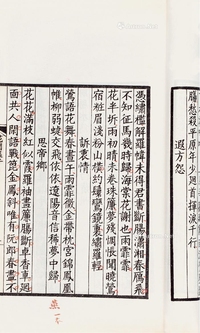 腸愁殺平原年少迴首揮淚千行
遐方怨
憑繡檻解羅幃未得君書斷腸瀟湘春鴈飛
不知征馬幾時歸海棠花謝也雨霏霏
花半坼雨初晴未卷珠簾夢殘惆悵聞曉鶯
宿粧眉淺粉山橫約鬟鸞鏡裏繡羅輕
訴衷情
鶯語花舞春晝午雨霏微金帶枕宮錦鳳凰
帷柳弱蝶交飛依依遼陽音信稀夢中歸
思帝鄉
花花滿枝紅似霞羅袖畫簾腸斷卓香車迴
面共人閒語戰篦金鳳斜唯有阮郎春盡不